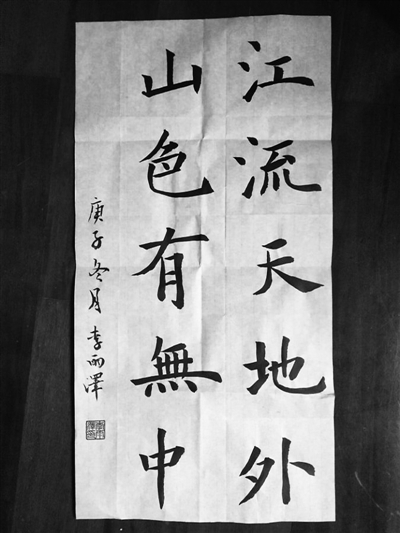 江流天地外
山色有無中
庚子冬月 李雨澤